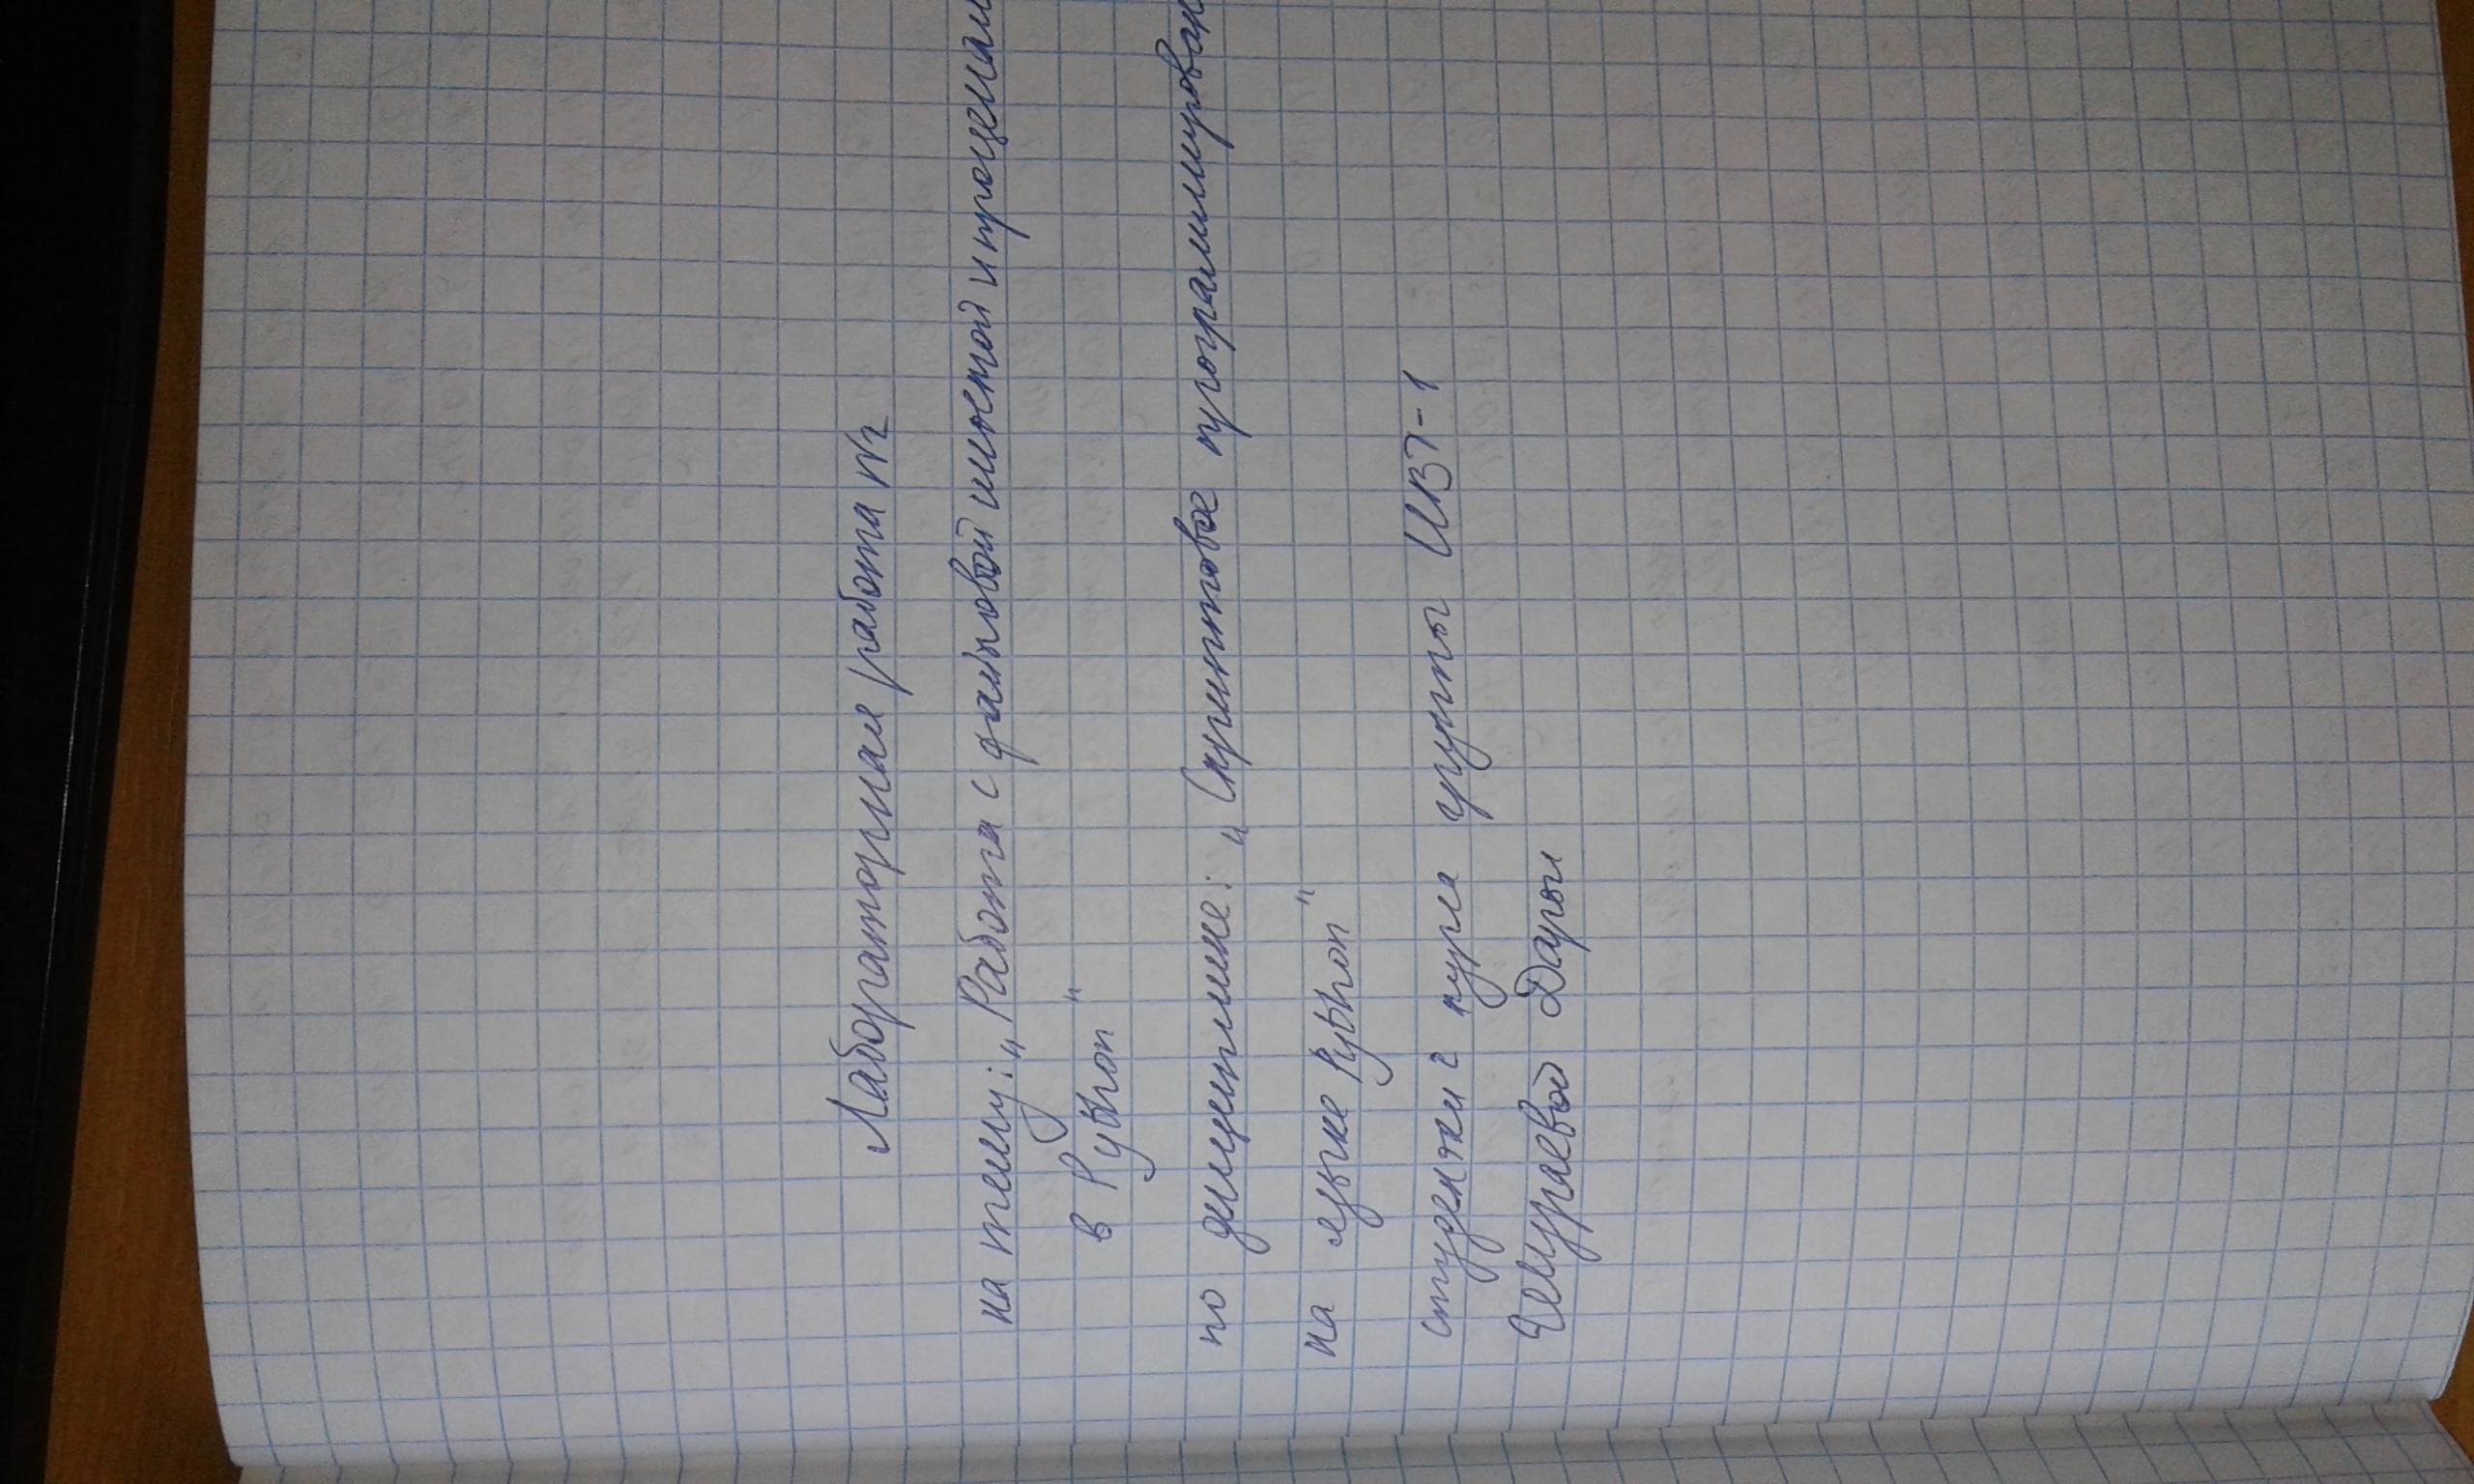 Лабораторная работа №2
на тему: „Работа с файловой системой и процессам
в Python"
по дисциплине: „Скриптовое программирован
на языке Python"
студентки 2 курса группы ИВТ-1
Дарьи